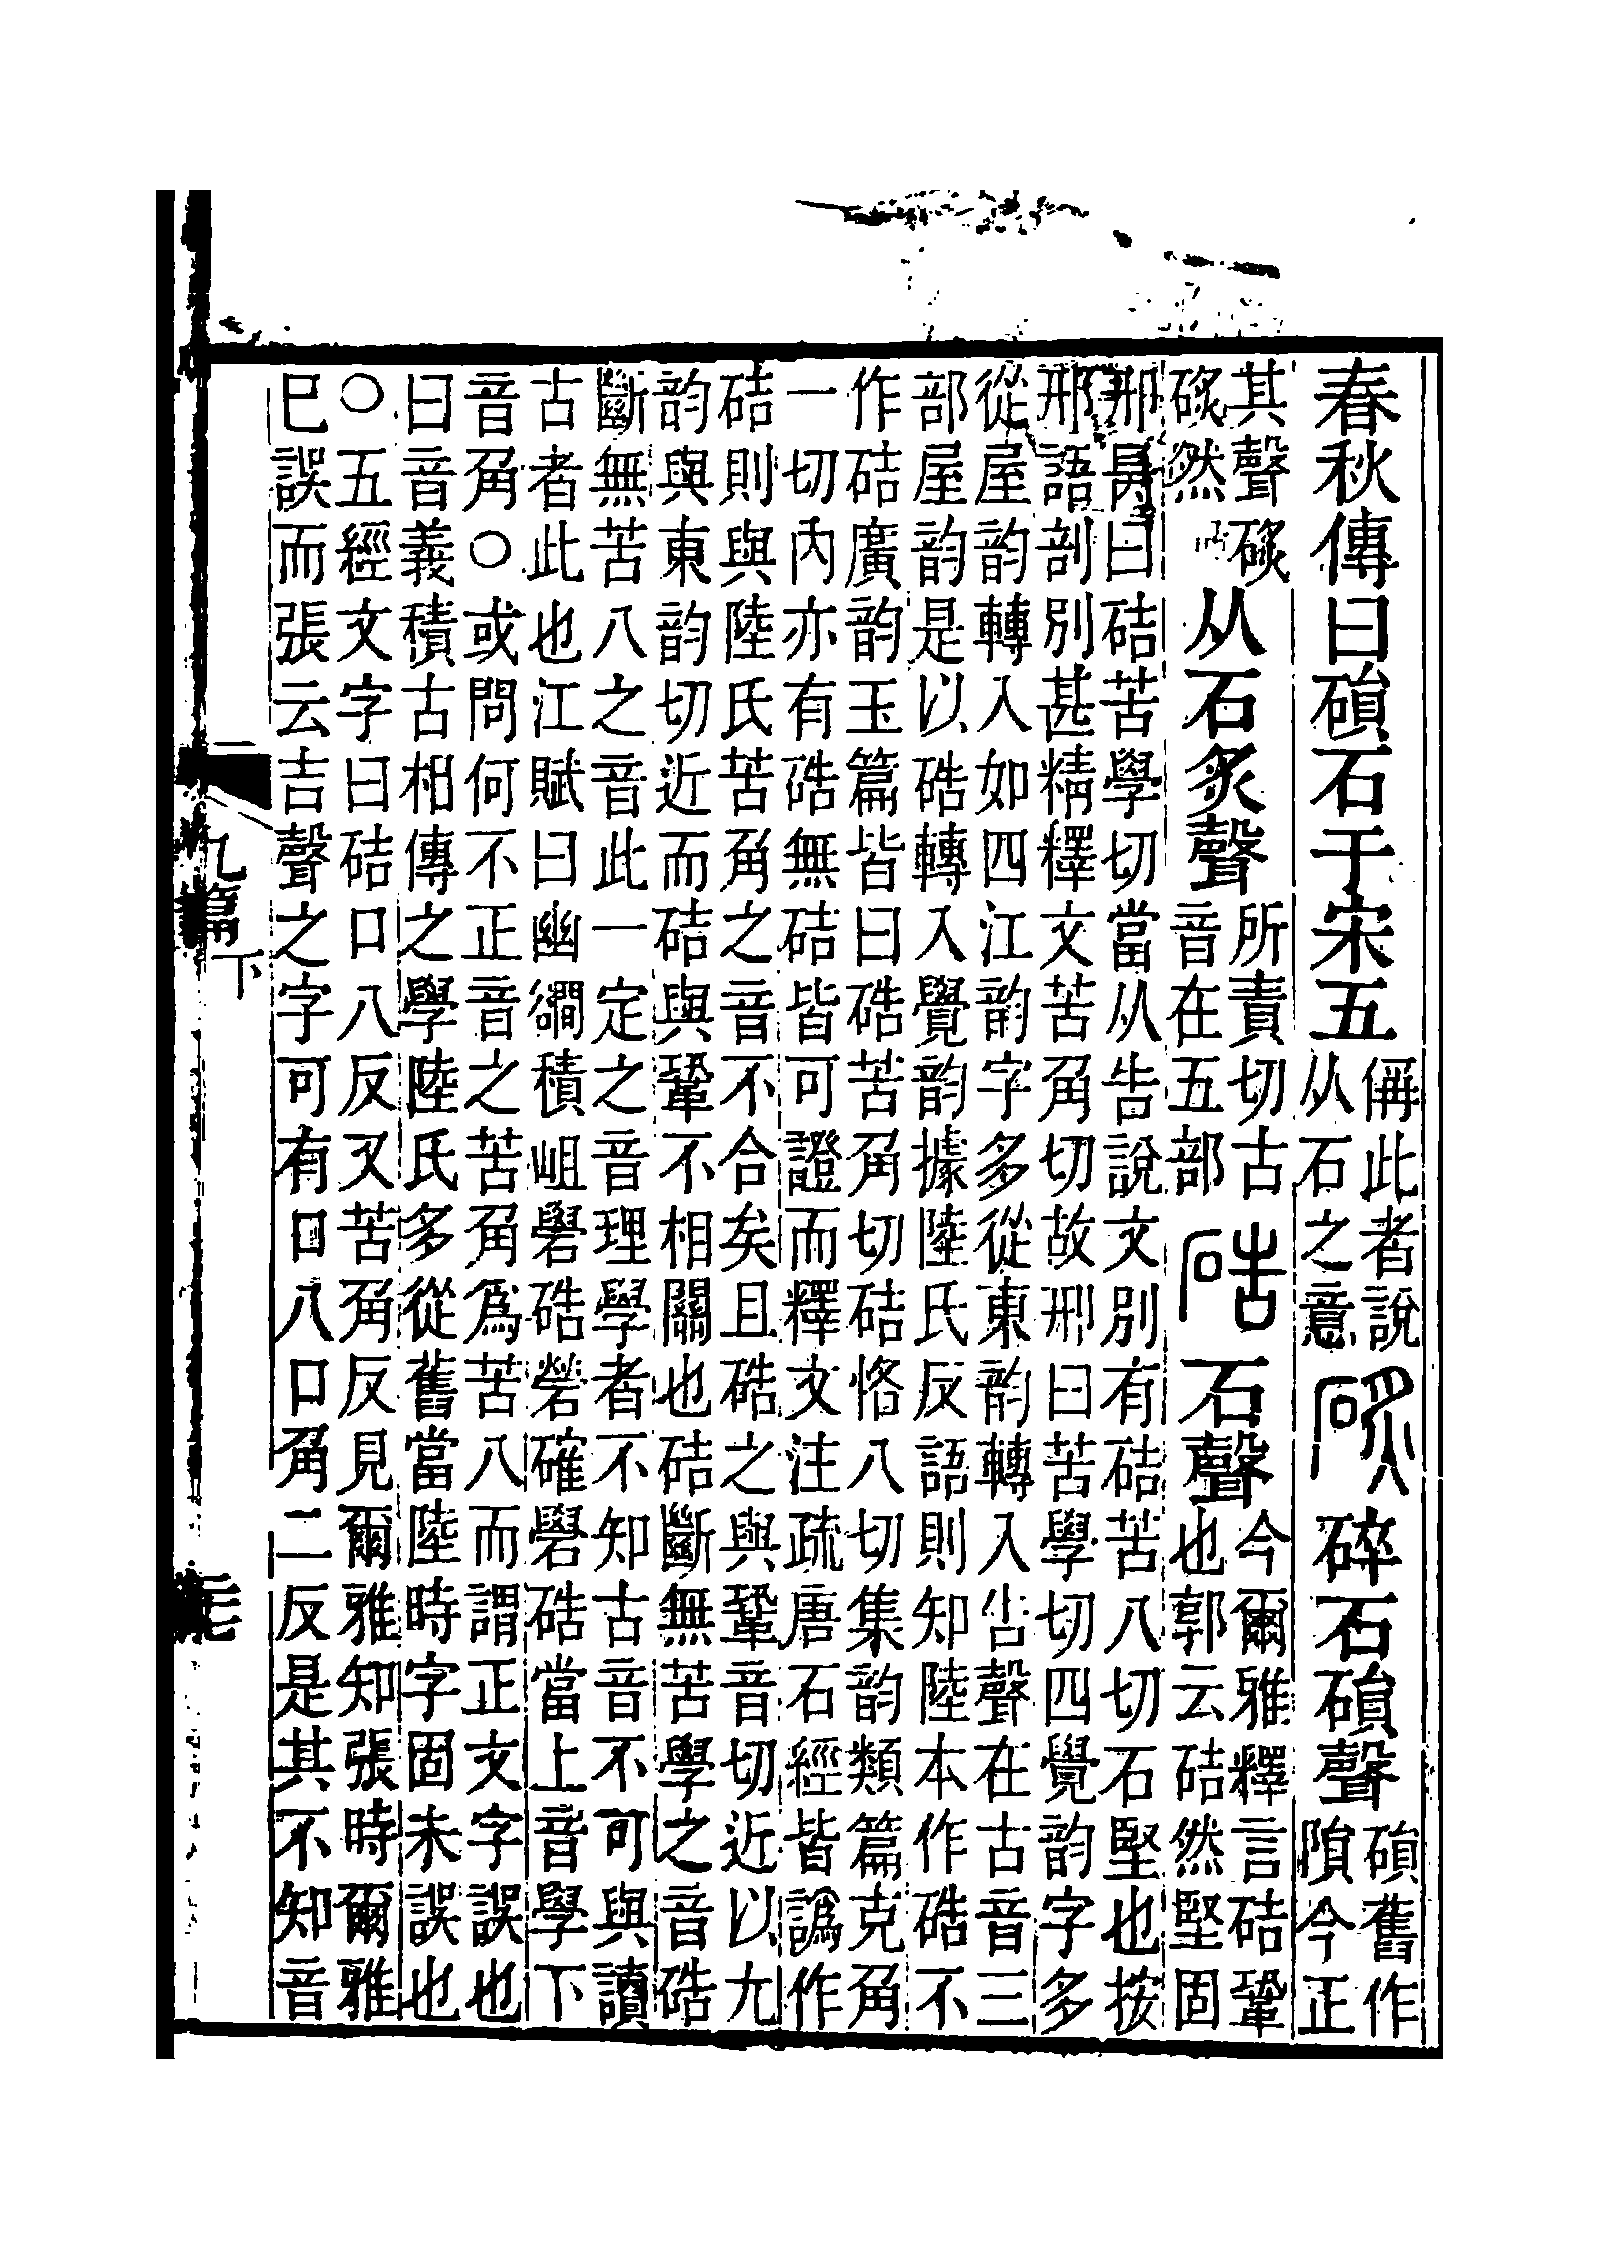 春秋傳曰磒石于宋五
偁此者說
从石之意
碎石磒聲
磒舊作
隕今正
其聲
然
从石炙聲
所責切古
音在五部
硞
石聲
今爾雅釋言硈鞏
也郭云硈然堅固
邢昺曰硈苦學切當从告說文別有硈苦八切石堅也按
邢語剖別甚精釋文苦角切故邢曰苦學切四覺韵字多
從屋韵轉入如四江韵字多從東韵轉入告聲在古音三
部屋韵是以硞轉入覺韵據陸氏反語則知陸本作硞不
作硈廣韵玉篇皆曰硞苦角切硈恪八切集韵類篇克角
一切內亦有硞無硈皆可證而釋文注疏唐石經皆譌作
硈則與陸氏苦角之音不合矣且硞之與鞏音切近以九
韵與東韵切近而硈與鞏不相關也硈斷無苦學之音硞
斷無苦八之音此一定之音理學者不知古音不可與讀
古者此也江賦曰幽澗積岨礐硞㠥確礐硞當上音學下
音角○或問何不正音之苦角爲苦八而謂正文字誤也
曰音義積古相傳之學陸氏多從舊當陸時字固未誤也
○五經文字曰硈口八反又苦角反見爾雅知張時爾雅
巳誤而張云吉聲之字可有口八口角二反是其不知音
九篇下